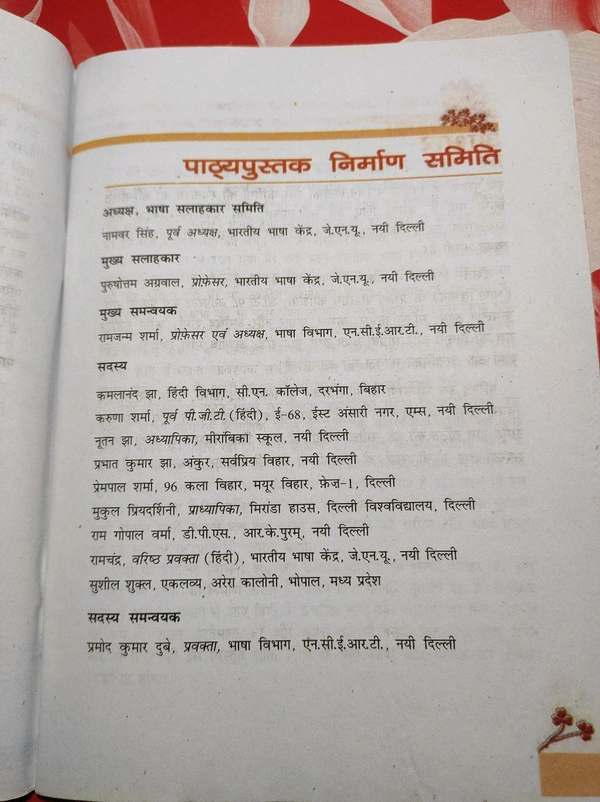 पाठ्यपुस्तक निर्माण समिति
अध्यक्ष, भाषा सलाहकार समिति
नामवर सिंह, पूर्व अध्यक्ष, भारतीय भाषा केंद्र, जे.एन.यू., नयी दिल्ली
मुख्य सलाहकार
पुरुषोत्तम अग्रवाल, प्रोफ़ेसर, भारतीय भाषा केंद्र, जे.एन.यू., नयी दिल्ली
मुख्य समन्वयक
रामजन्म शर्मा, प्रोफ़ेसर एवं अध्यक्ष, भाषा विभाग, एन.सी.ई.आर.टी., नयी दिल्ली
सदस्य
कमलानंद झा, हिंदी विभाग, सी.एन. कॉलेज, दरभंगा, बिहार
करुणा शर्मा, पूर्व पी.जी.टी. (हिंदी), ई-68, ईस्ट अंसारी नगर, एम्स, नयी दिल्ली
नूतन झा, अध्यापिका, मीरांबिका स्कूल, नयी दिल्ली
प्रभात कुमार झा, अंकुर, सर्वप्रिय विहार, नयी दिल्ली
प्रेमपाल शर्मा, 96 कला विहार, मयूर विहार, फ़ेज़-1, दिल्ली
मुकुल प्रियदर्शिनी, प्राध्यापिका, मिरांडा हाउस, दिल्ली विश्वविद्यालय, दिल्ली
राम गोपाल वर्मा, डी.पी.एस., आर.के.पुरम्, नयी दिल्ली
रामचंद्र, वरिष्ठ प्रवक्ता (हिंदी), भारतीय भाषा केंद्र, जे.एन.यू., नयी दिल्ली
सुशील शुक्ल, एकलव्य, अरेरा कालोनी, भोपाल, मध्य प्रदेश
सदस्य समन्वयक
प्रमोद कुमार दुबे, प्रवक्ता, भाषा विभाग, एन.सी.ई.आर.टी., नयी दिल्ली